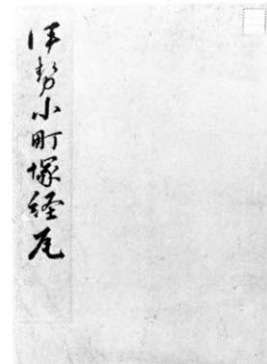 伊勢小町塚経瓦